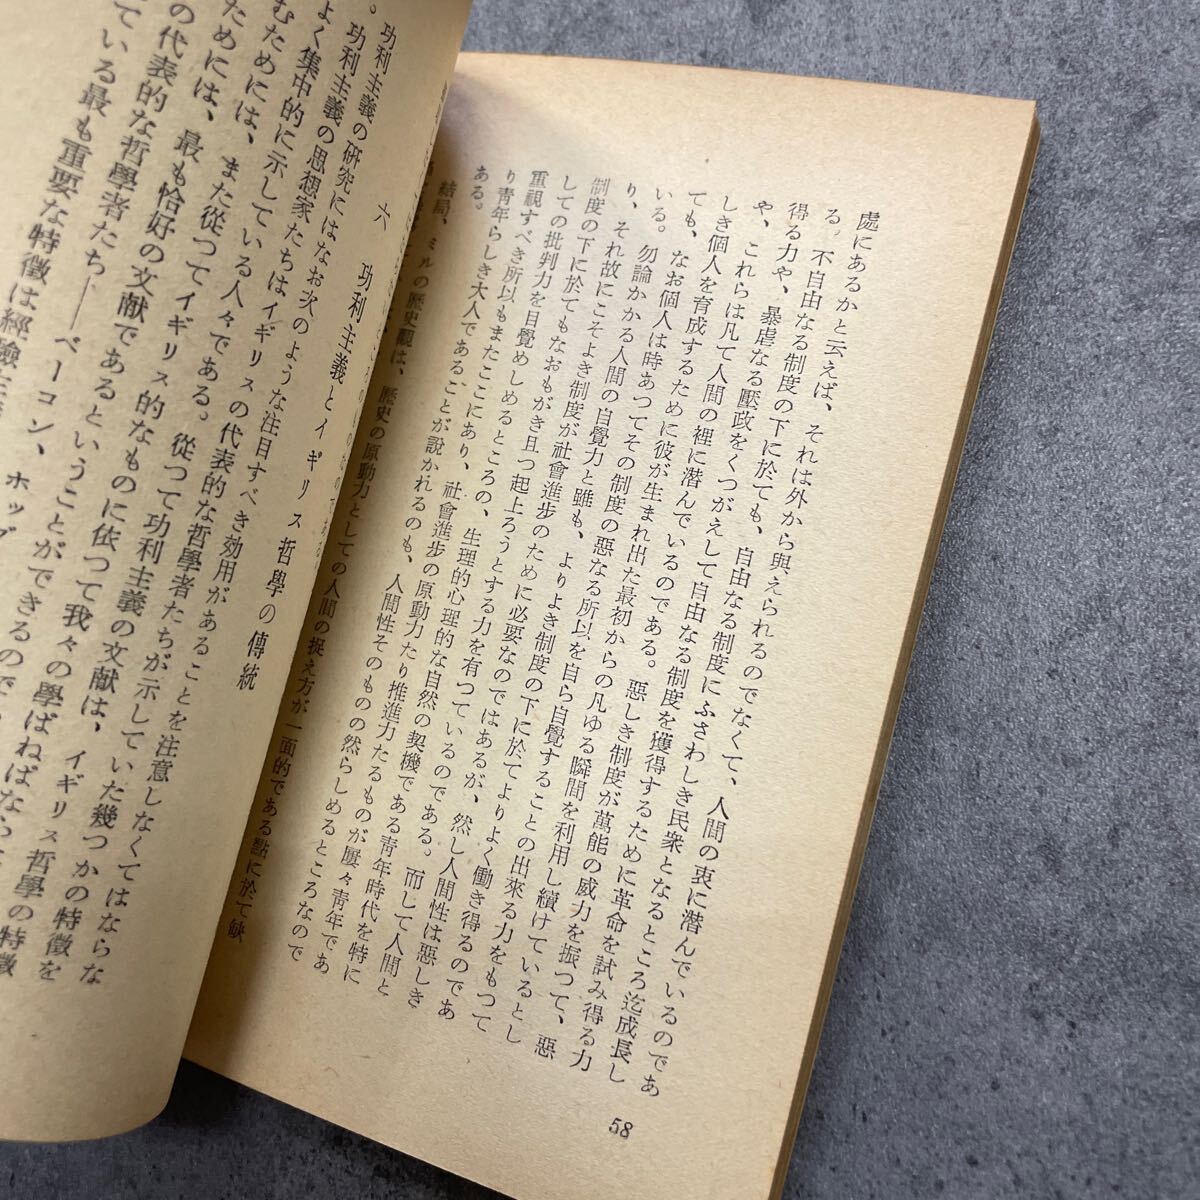 處にあるかと云えば、それは外から與えられるのでなくて、人間の衷に潜んでいるのであ
る。不自由なる制度の下に於ても、自由なる制度にふさわしき民衆となるところ迄成長し
得る力や、暴虐なる壓政をくつがえして自由なる制度を獲得するために革命を試み得る力
や、これらは凡て人間の裡に潜んでいるのである。惡しき制度が萬能の威力を振つて、惡
しき個人を育成するために彼が生まれ出た最初からの凡ゆる瞬間を利用し續けているとし
ても、なお個人は時あつてその制度の惡なる所以を自ら自覺することの出來る力をもつて
いる。勿論かかる人間の自覺力と雖も、よりよき制度の下に於てよりよく働き得るのであ
り、それ故にこそよき制度が社會進步のために必要なのではあるが、然し人間性は惡しき
制度の下に於てもなおもがき且つ起上ろうとする力を有つているのである。而して人間と
しての批判力を目覺めしめるところの、生理的心理的な自然の契機である青年時代を特に
重視すべき所以もまたここにあり、社會進步の原動力たり推進力たるものが屢々青年であ
り青年らしき大人であることが說かれるのも、人間性そのものの然らしめるところなので
ある。
結局、ミルの歷史觀は、歷史の原動力としての人間の捉え方が一面的である點に於て缺
58
六　功利主義とイギリス哲學の傳統
功利主義の硏究にはなお次のような注目すべき効用があることを注意しなくてはならな
。功利主義の思想家たちはイギリスの代表的な哲學者たちが示していた幾つかの特徵を
よく集中的に示している人々である。從つて功利主義の文献は、イギリス哲學の特徵
むためには、また從つてイギリス的なものに依つて我々の學ばねばなら
ためには、最も恰好の文献であるということができるので
の代表的な哲學者たち――ベーコン、ホッブ
ている最も重要な特徵は經驗主